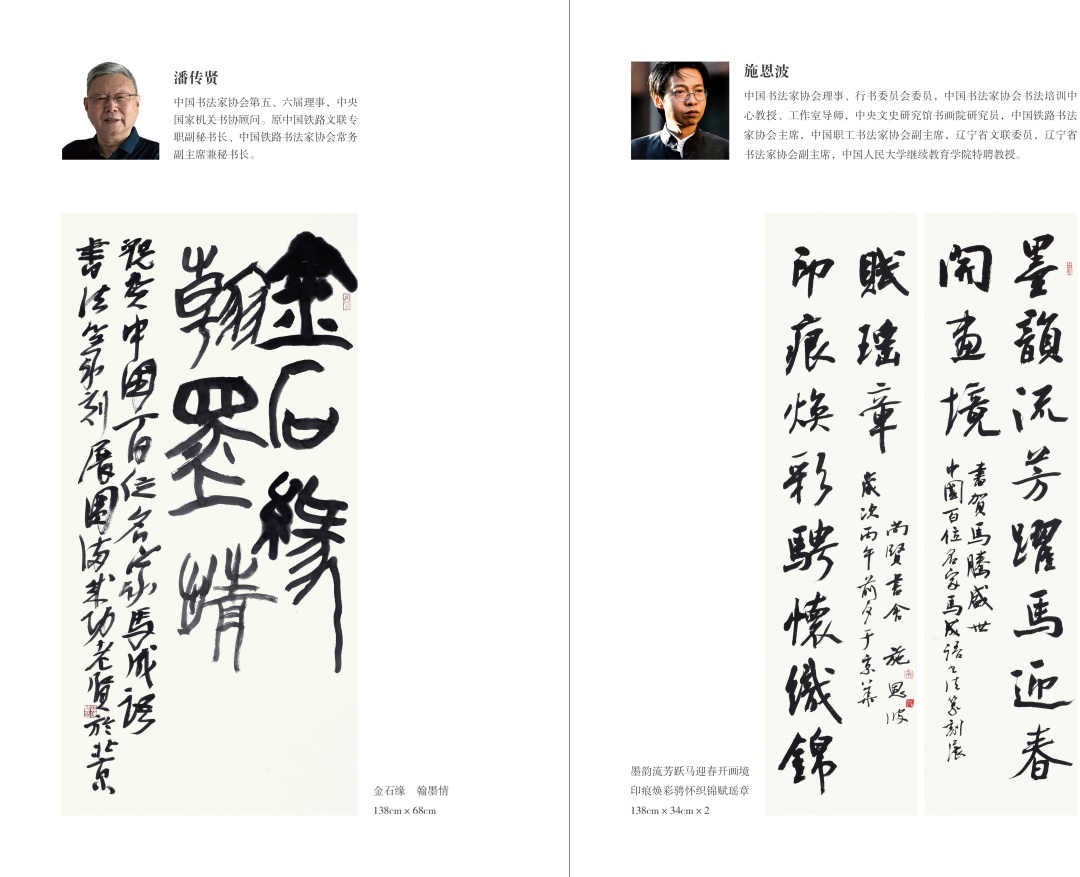 潘传贤
中国书法家协会第五、六届理事，中央
国家机关书协顾问。原中国铁路文联专
职副秘书长、中国铁路书法家协会常务
副主席兼秘书长。
金石缘
翰墨情
祝贺中国百位名家马成语
书法篆刻展圆满成功老贤於北京
金石缘　翰墨情
138cm × 68cm
施恩波
中国书法家协会理事、行书委员会委员，中国书法家协会书法培训中
心教授、工作室导师，中央文史研究馆书画院研究员，中国铁路书法
家协会主席，中国职工书法家协会副主席，辽宁省文联委员，辽宁省
书法家协会副主席，中国人民大学继续教育学院特聘教授。
墨韻流芳躍馬迎春
開畫境
書賀馬騰盛世
中國百位名家馬成語書法篆刻展
印痕焕彩騁懷織錦
賦瑤章
歲次丙午前夕于京華
尚賢書舍 施恩波
墨韵流芳跃马迎春开画境
印痕焕彩骋怀织锦赋瑶章
138cm × 34cm × 2